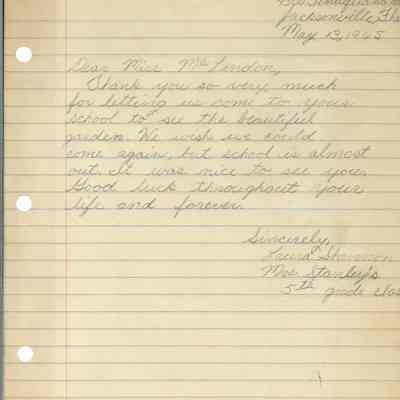 Jacksonville, Fla
May 13, 1945
Dear Miss McLendon,
Thank you so very much
for letting us come to your
school to see the beautiful
garden. We wish we could
come again, but school is almost
out. It was nice to see you.
Good luck throughout your
life and forever.
Sincerely,
Laura Shannon
Mrs. Stanley's
5th grade clas